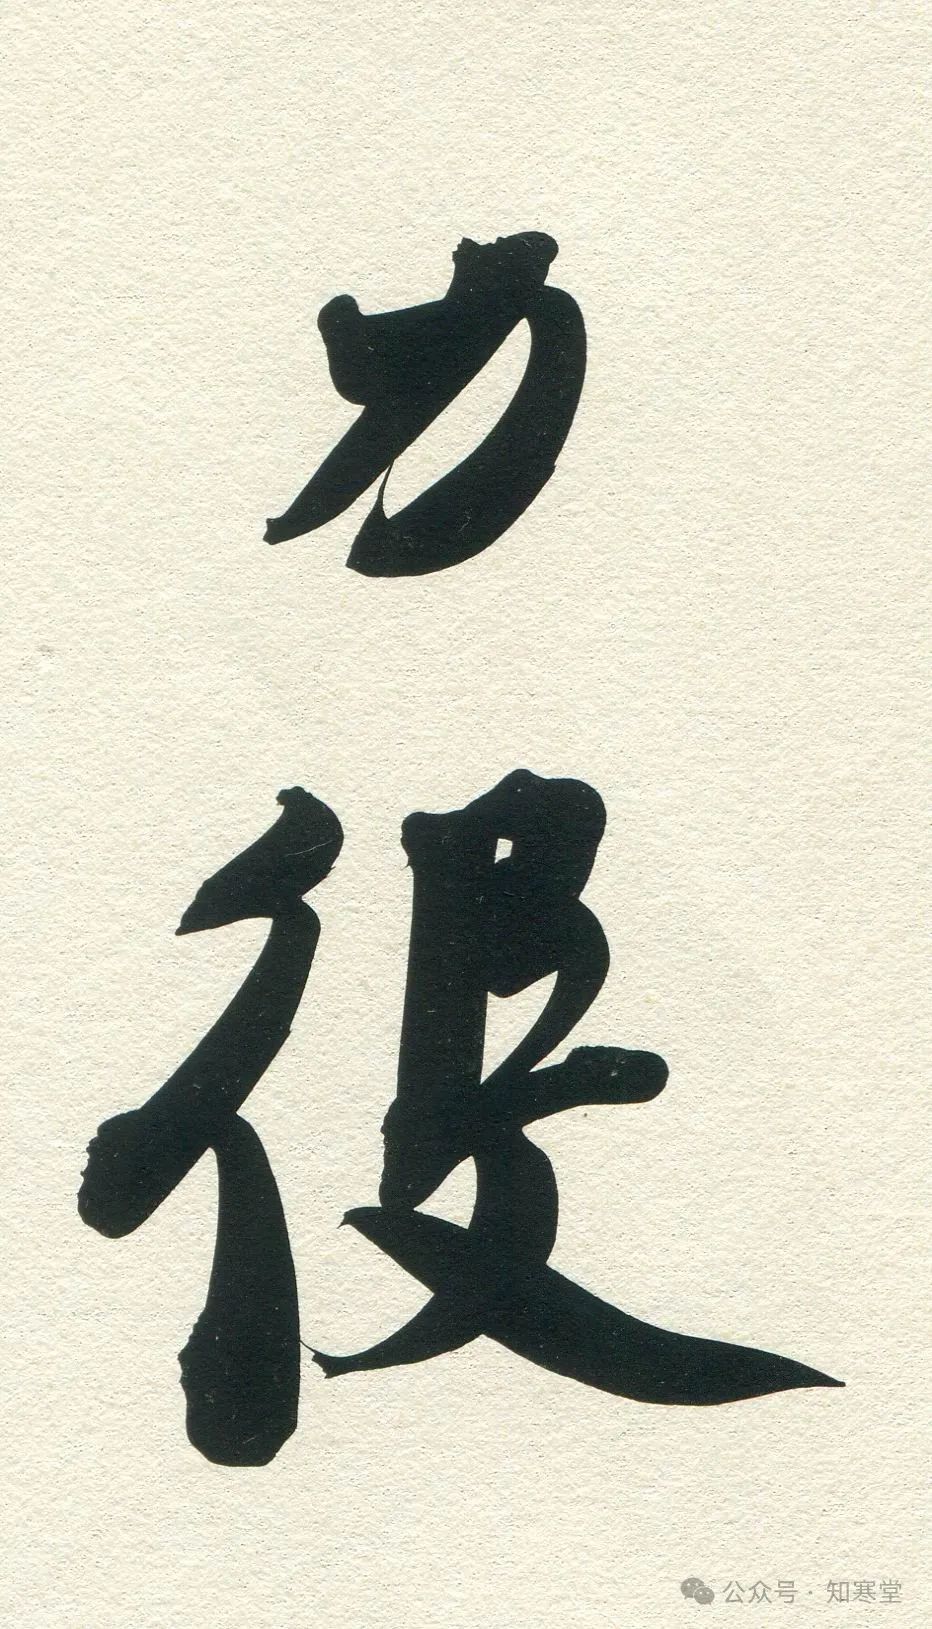 力
假
公众号 · 知寒堂